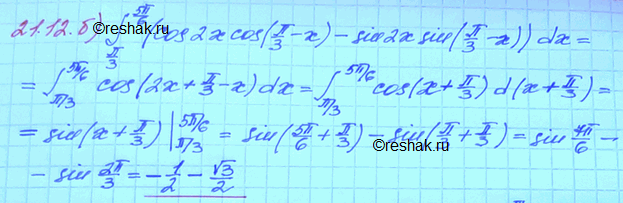 21.12.б) ∫_{π/3}^{5π/6} (cos 2x cos(π/3 - x) - sin 2x sin(π/3 - x)) dx =
= ∫_{π/3}^{5π/6} cos(2x + π/3 - x) dx = ∫_{π/3}^{5π/6} cos(x + π/3) d(x + π/3) =
= sin(x + π/3) |_{π/3}^{5π/6} = sin(5π/6 + π/3) - sin(π/3 + π/3) = sin 7π/6 -
- sin 2π/3 = -1/2 - √3/2